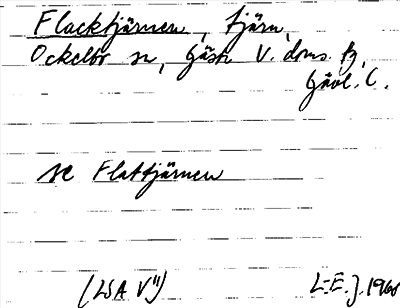 Flacktjärnen, tjärn,
Ockelbo sn, Gästr V. doms. tg,
Gävl. C.
se Flattjärnen
(LSA V")
L-E. J. 1960